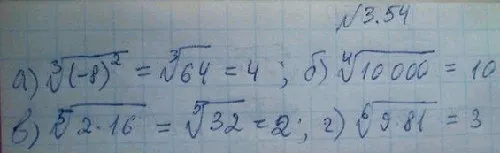 №3.54
а) ∛(-8)² = ∛64 = 4 ; б) ∜10 000 = 10
в) ⁵√2·16 = ⁵√32 = 2 ; г) ⁶√9·81 = 3